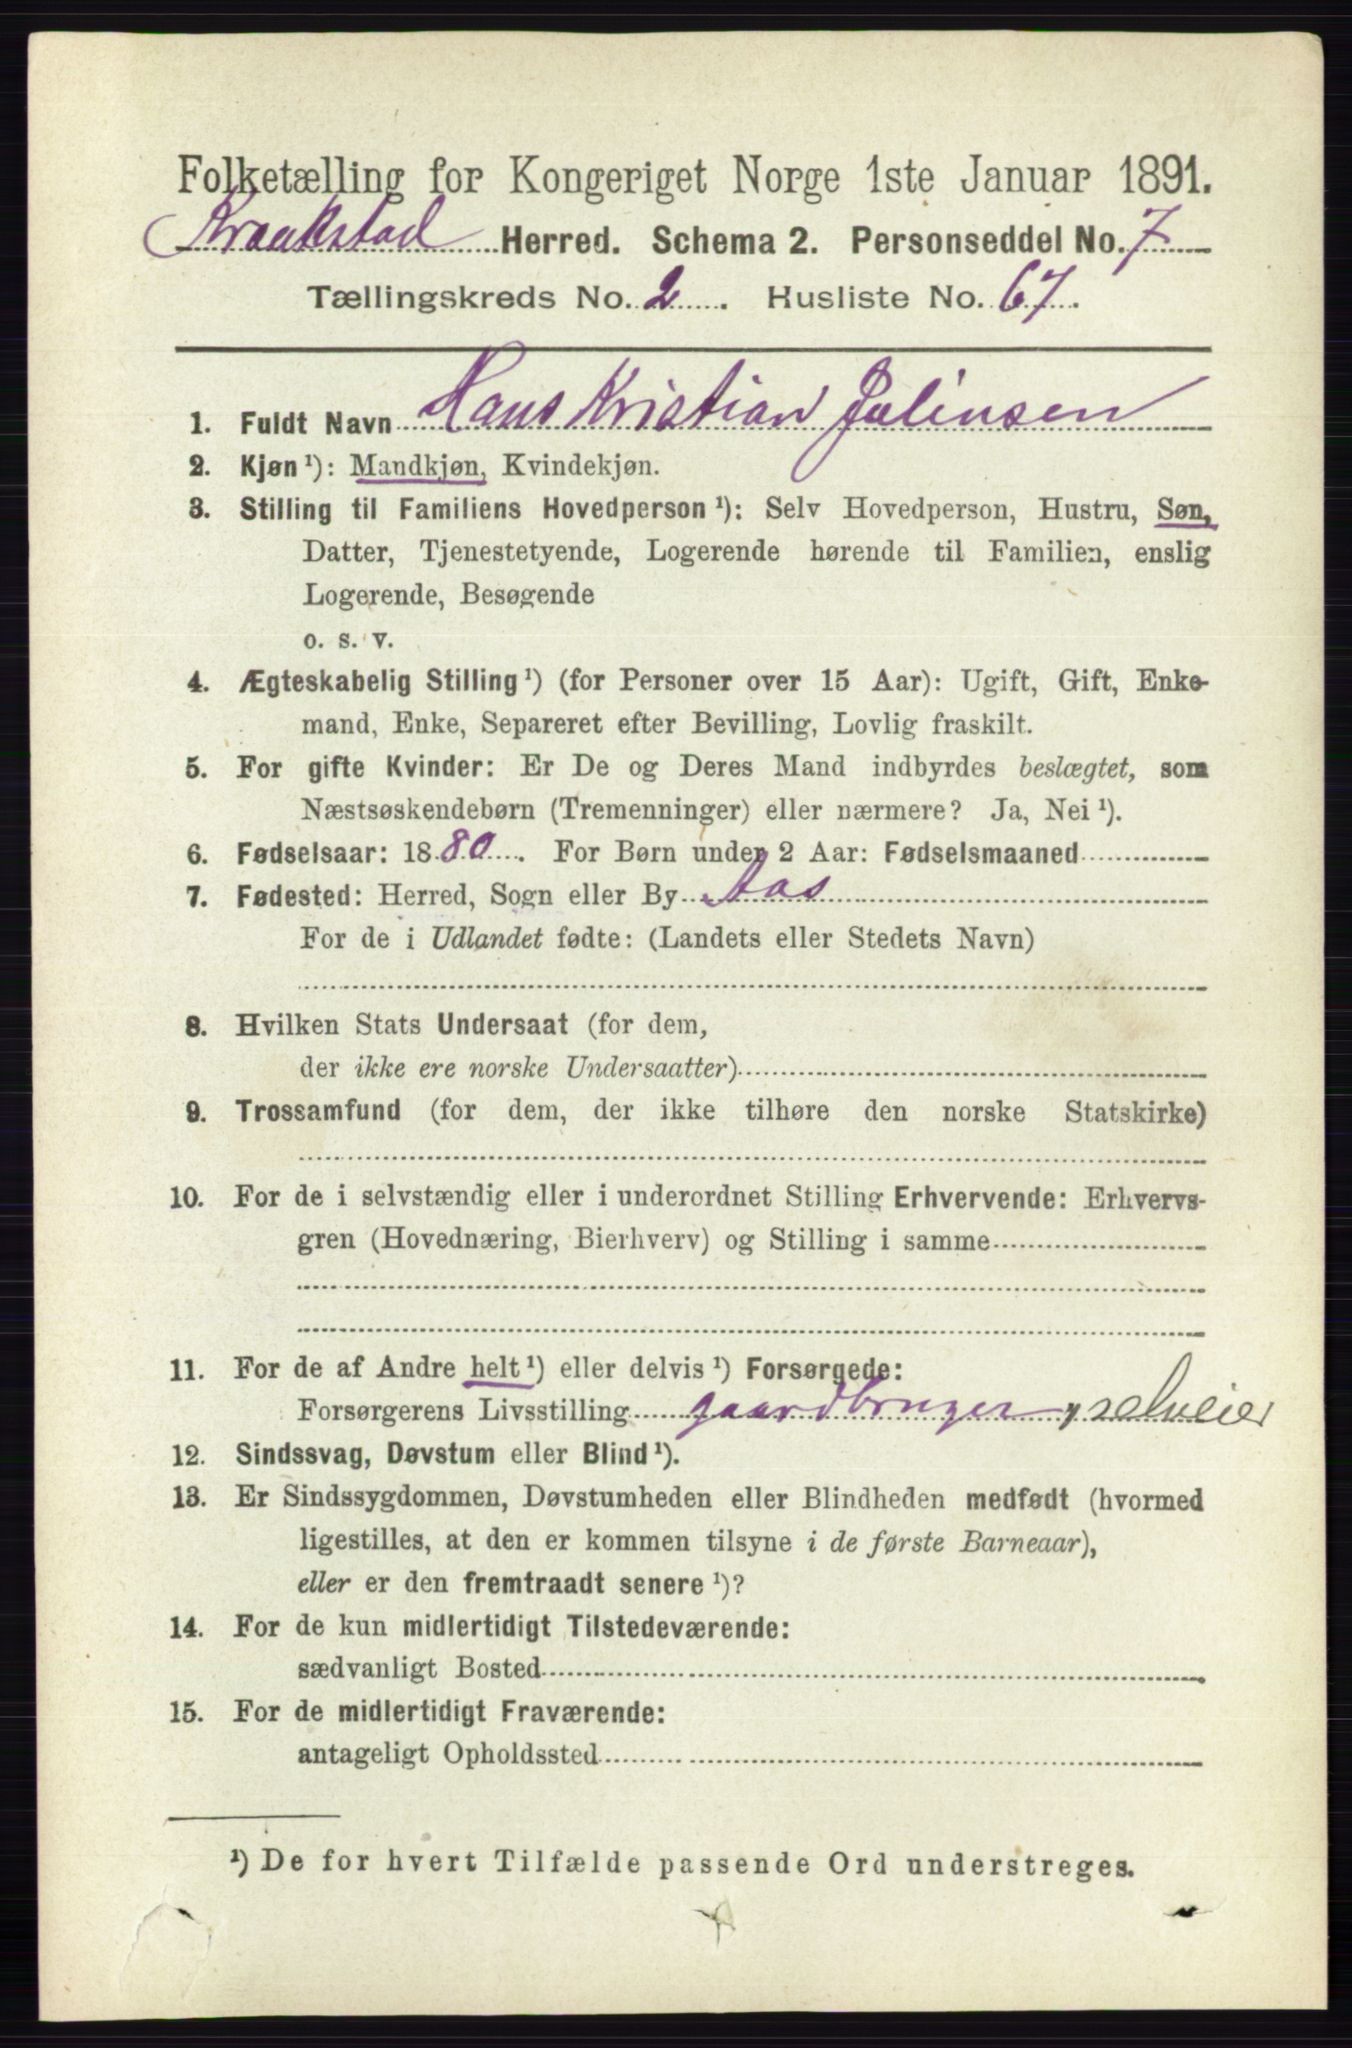 Folketælling for Kongeriget Norge 1ste Januar 1891.
Kraakstad Herred. Schema 2. Personseddel No. 7
Tællingskreds No. 2. Husliste No. 67.
1. Fuldt Navn Hans Kristian Julinsen
2. Kjøn ¹): Mandkjøn, Kvindekjøn.
3. Stilling til Familiens Hovedperson ¹): Selv Hovedperson, Hustru, Søn,
Datter, Tjenestetyende, Logerende hørende til Familien, enslig
Logerende, Besøgende
o. s. v.
4. Ægteskabelig Stilling ¹) (for Personer over 15 Aar): Ugift, Gift, Enke-
mand, Enke, Separeret efter Bevilling, Lovlig fraskilt.
5. For gifte Kvinder: Er De og Deres Mand indbyrdes beslægtet, som
Næstsøskendebørn (Tremenninger) eller nærmere? Ja, Nei ¹).
6. Fødselsaar: 1880. For Børn under 2 Aar: Fødselsmaaned
7. Fødested: Herred, Sogn eller By Aas
For de i Udlandet fødte: (Landets eller Stedets Navn)
8. Hvilken Stats Undersaat (for dem,
der ikke ere norske Undersaatter)
9. Trossamfund (for dem, der ikke tilhøre den norske Statskirke)
10. For de i selvstændig eller i underordnet Stilling Erhvervende: Erhvervs-
gren (Hovednæring, Bierhverv) og Stilling i samme
11. For de af Andre helt ¹) eller delvis ¹) Forsørgede:
Forsørgerens Livsstilling gaardbruger, selveier
12. Sindssvag, Døvstum eller Blind ¹).
13. Er Sindssygdommen, Døvstumheden eller Blindheden medfødt (hvormed
ligestilles, at den er kommen tilsyne i de første Barneaar),
eller er den fremtraadt senere ¹)?
14. For de kun midlertidigt Tilstedeværende:
sædvanligt Bosted
15. For de midlertidigt Fraværende:
antageligt Opholdssted
¹) De for hvert Tilfælde passende Ord understreges.